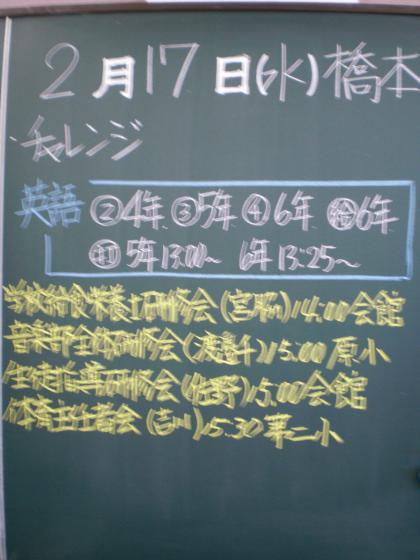 2月17日(水)橋本
・チャレンジ
英語 ②4年 ③5年 ④6年 ㊗6年
5年 13:00～ 6年 13:25～
学校給食栄養士研修会(宮脇)14:00会館
音楽部全体研修会()15:00原小
生徒指導研修会(牧野)15:00会館
体育主任者会(吉川)15:30第二小